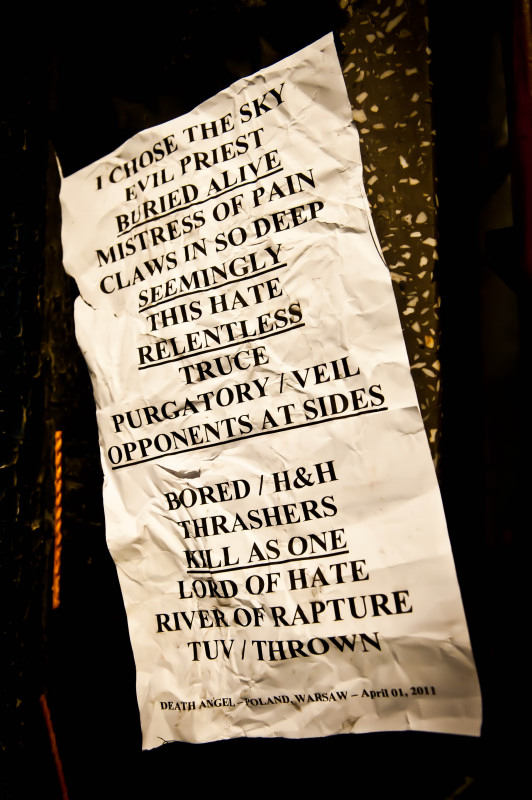 I CHOSE THE SKY
EVIL PRIEST
BURIED ALIVE
MISTRESS OF PAIN
CLAWS IN SO DEEP
SEEMINGLY
THIS HATE
RELENTLESS
TRUCE
PURGATORY / VEIL
OPPONENTS AT SIDES
BORED / H&H
THRASHERS
KILL AS ONE
LORD OF HATE
RIVER OF RAPTURE
TUV / THROWN
DEATH ANGEL – POLAND, WARSAW – April 01, 2011